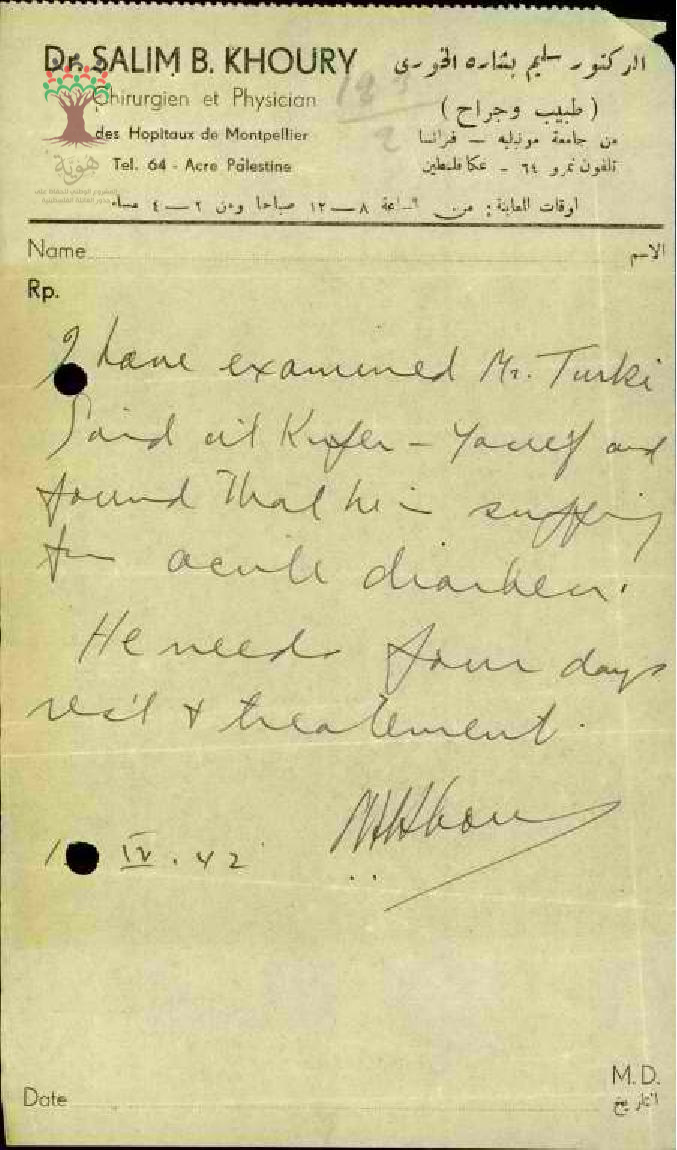 Dr. SALIM B. KHOURY
الدكتور سليم بشاره الخوري
Chirurgien et Physician
(طبيب وجراح)
des Hopitaux de Montpellier
من جامعة مونبليه — فرانسا
Tel. 64 - Acre Palestine
تلفون نمرو ٦٤ - عكا فلسطين
هوية
اوقات المعاينة: من الساعة ٨ — ١٢ صباحا ومن ٢ — ٤ مساء
Name
الاسم
Rp.
I have examined Mr. Turki
Said at Kufer - Yousef and
found that he is suffering
from acute diarrhea.
He needs four days
rest & treatement.
IV . 42
M.D.
Date
التاريخ